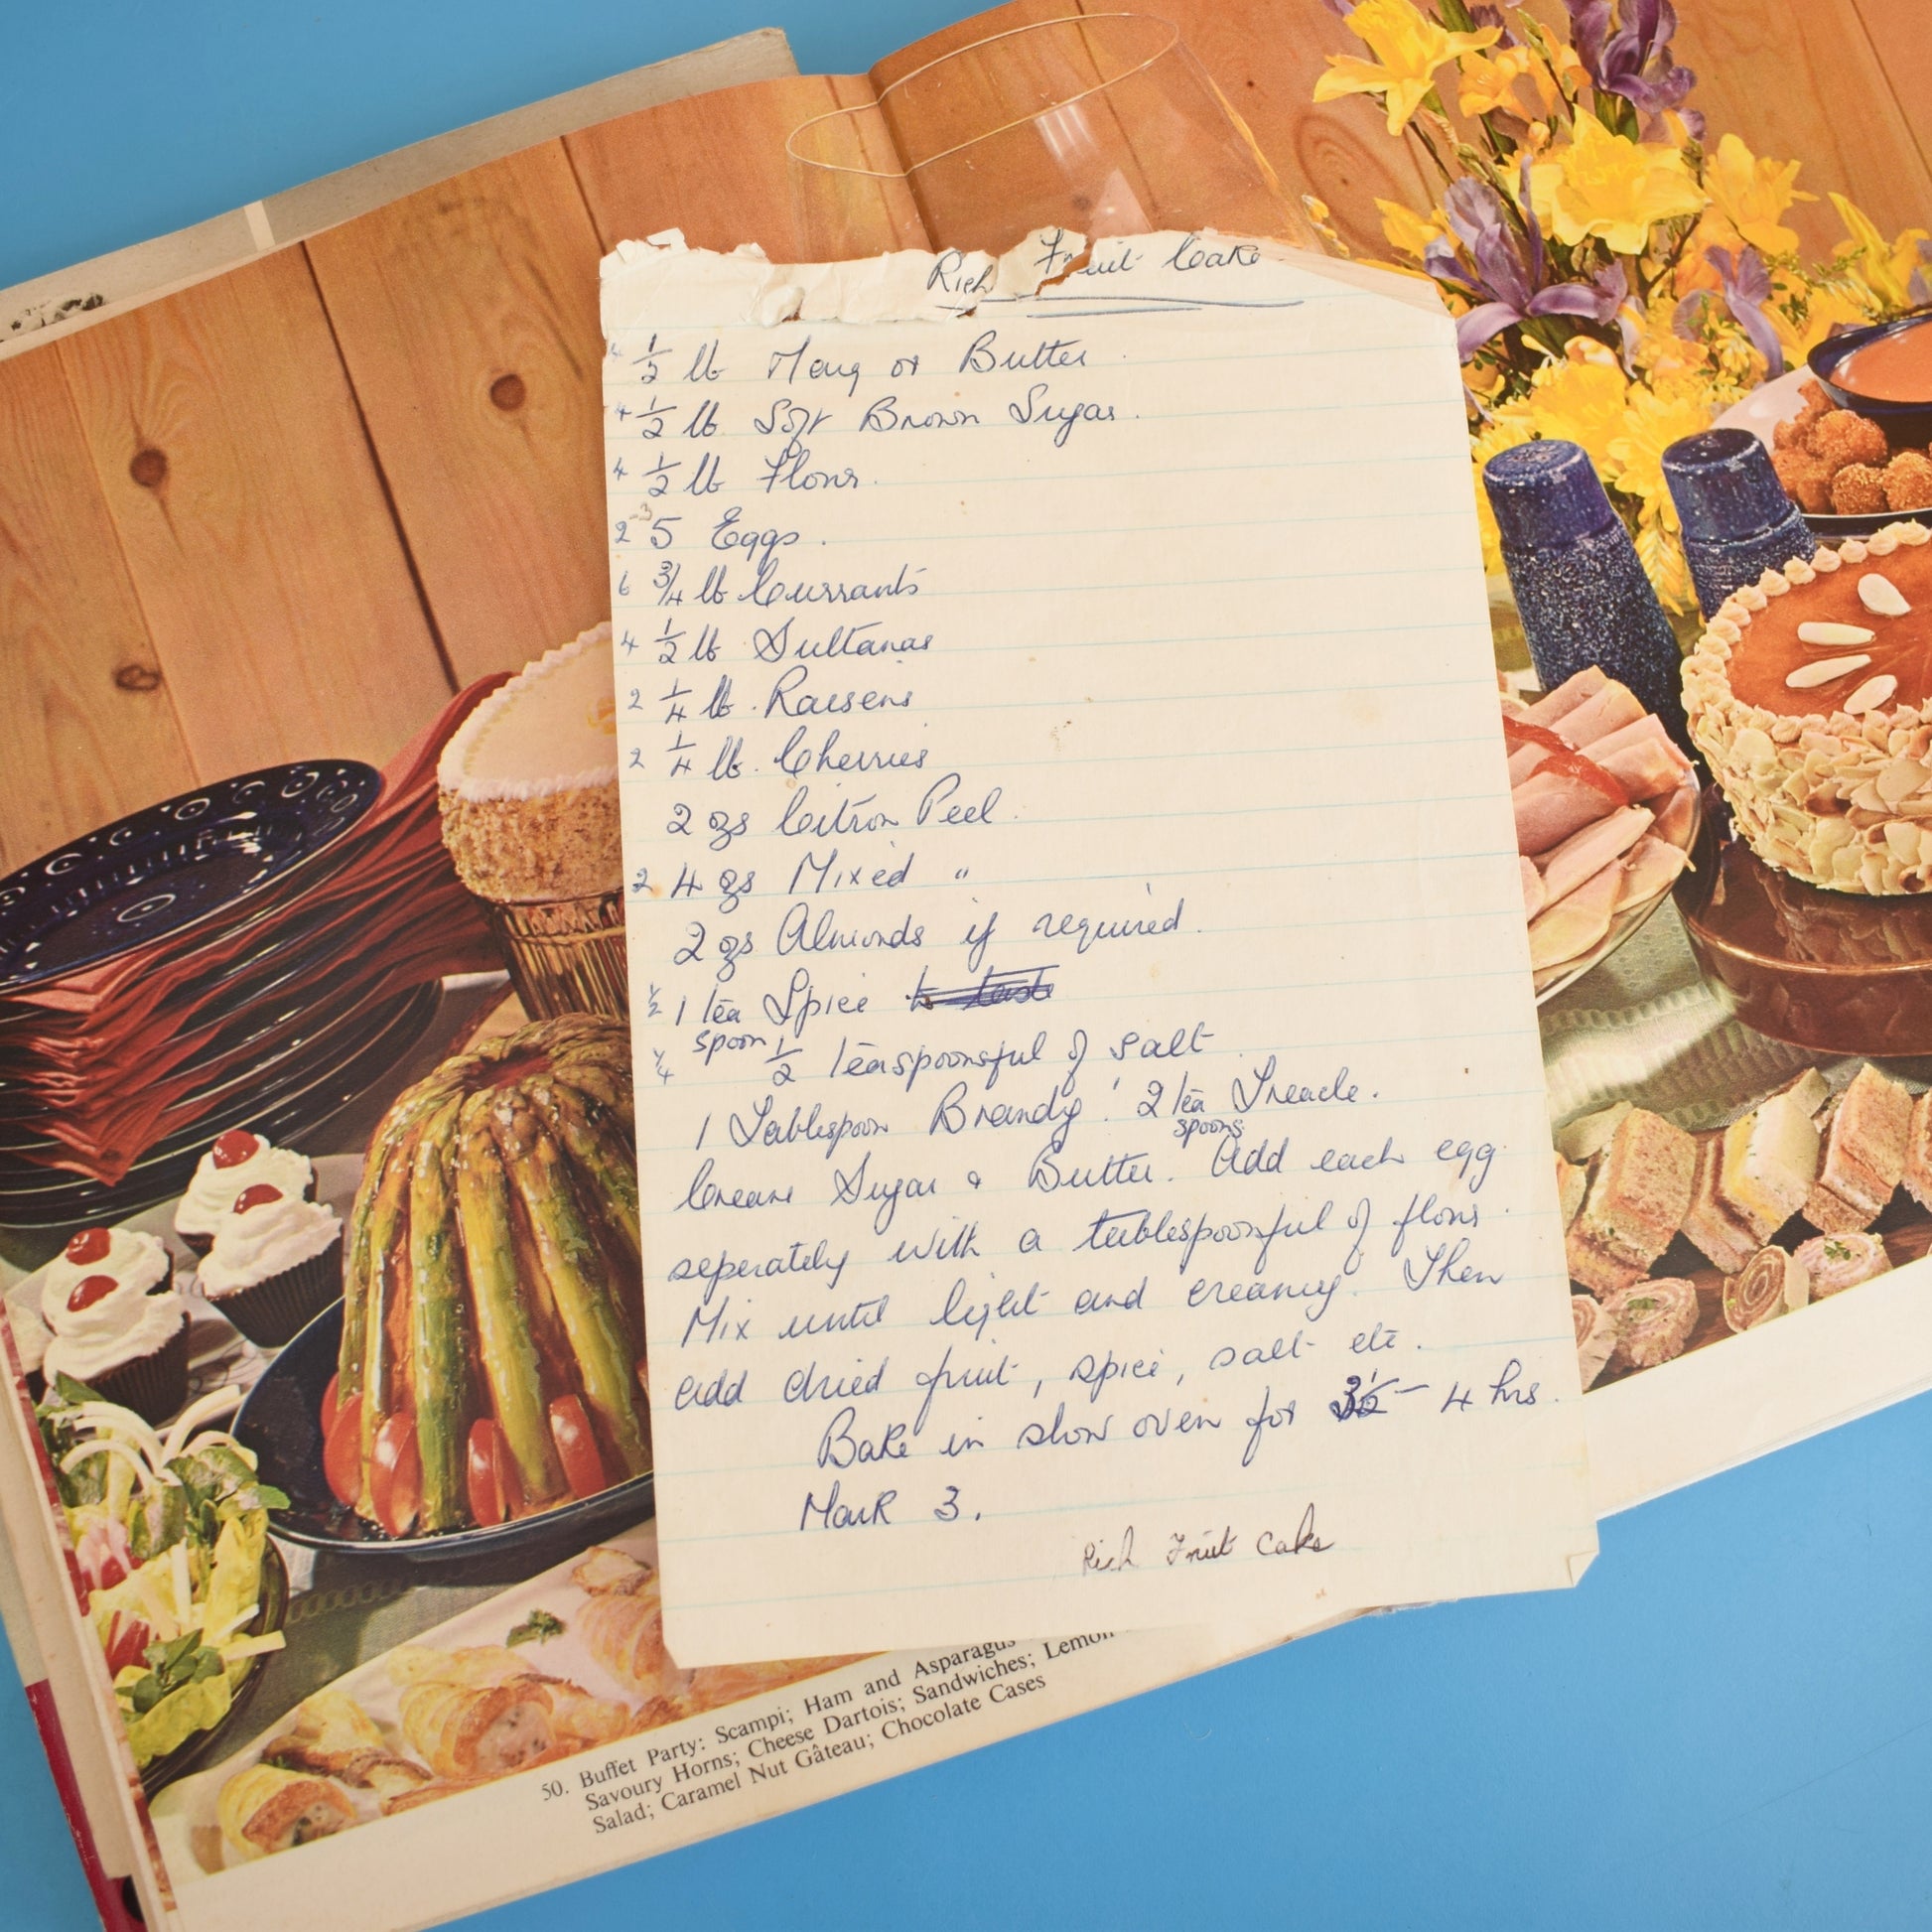 Rich Fruit Cake
4 1/2 lb Marg or Butter.
4 1/2 lb Soft Brown Sugar.
4 1/2 lb Flour.
2-3 5 Eggs.
6 3/4 lb Currants
4 1/2 lb Sultanas
2 1/4 lb. Raisens
2 1/4 lb. Cherries
2 ozs Citron Peel.
2 4 ozs Mixed "
2 ozs Almonds if required.
1/2 1 tea spoon Spice to taste
1/4 1/2 teaspoonsful of salt.
1 Tablespoon Brandy! 2 tea spoons Treacle.
Cream Sugar & Butter. Add each egg
seperately with a tablespoonful of flour.
Mix until light and creamy. Then
add dried fruit, spice, salt etc.
Bake in slow oven for 3 1/2 - 4 hrs.
Mark 3.
Rich Fruit Cake
50. Buffet Party: Scampi; Ham and Asparagus
Savoury Horns; Cheese Dartois; Sandwiches; Lemon
Salad; Caramel Nut Gâteau; Chocolate Cases